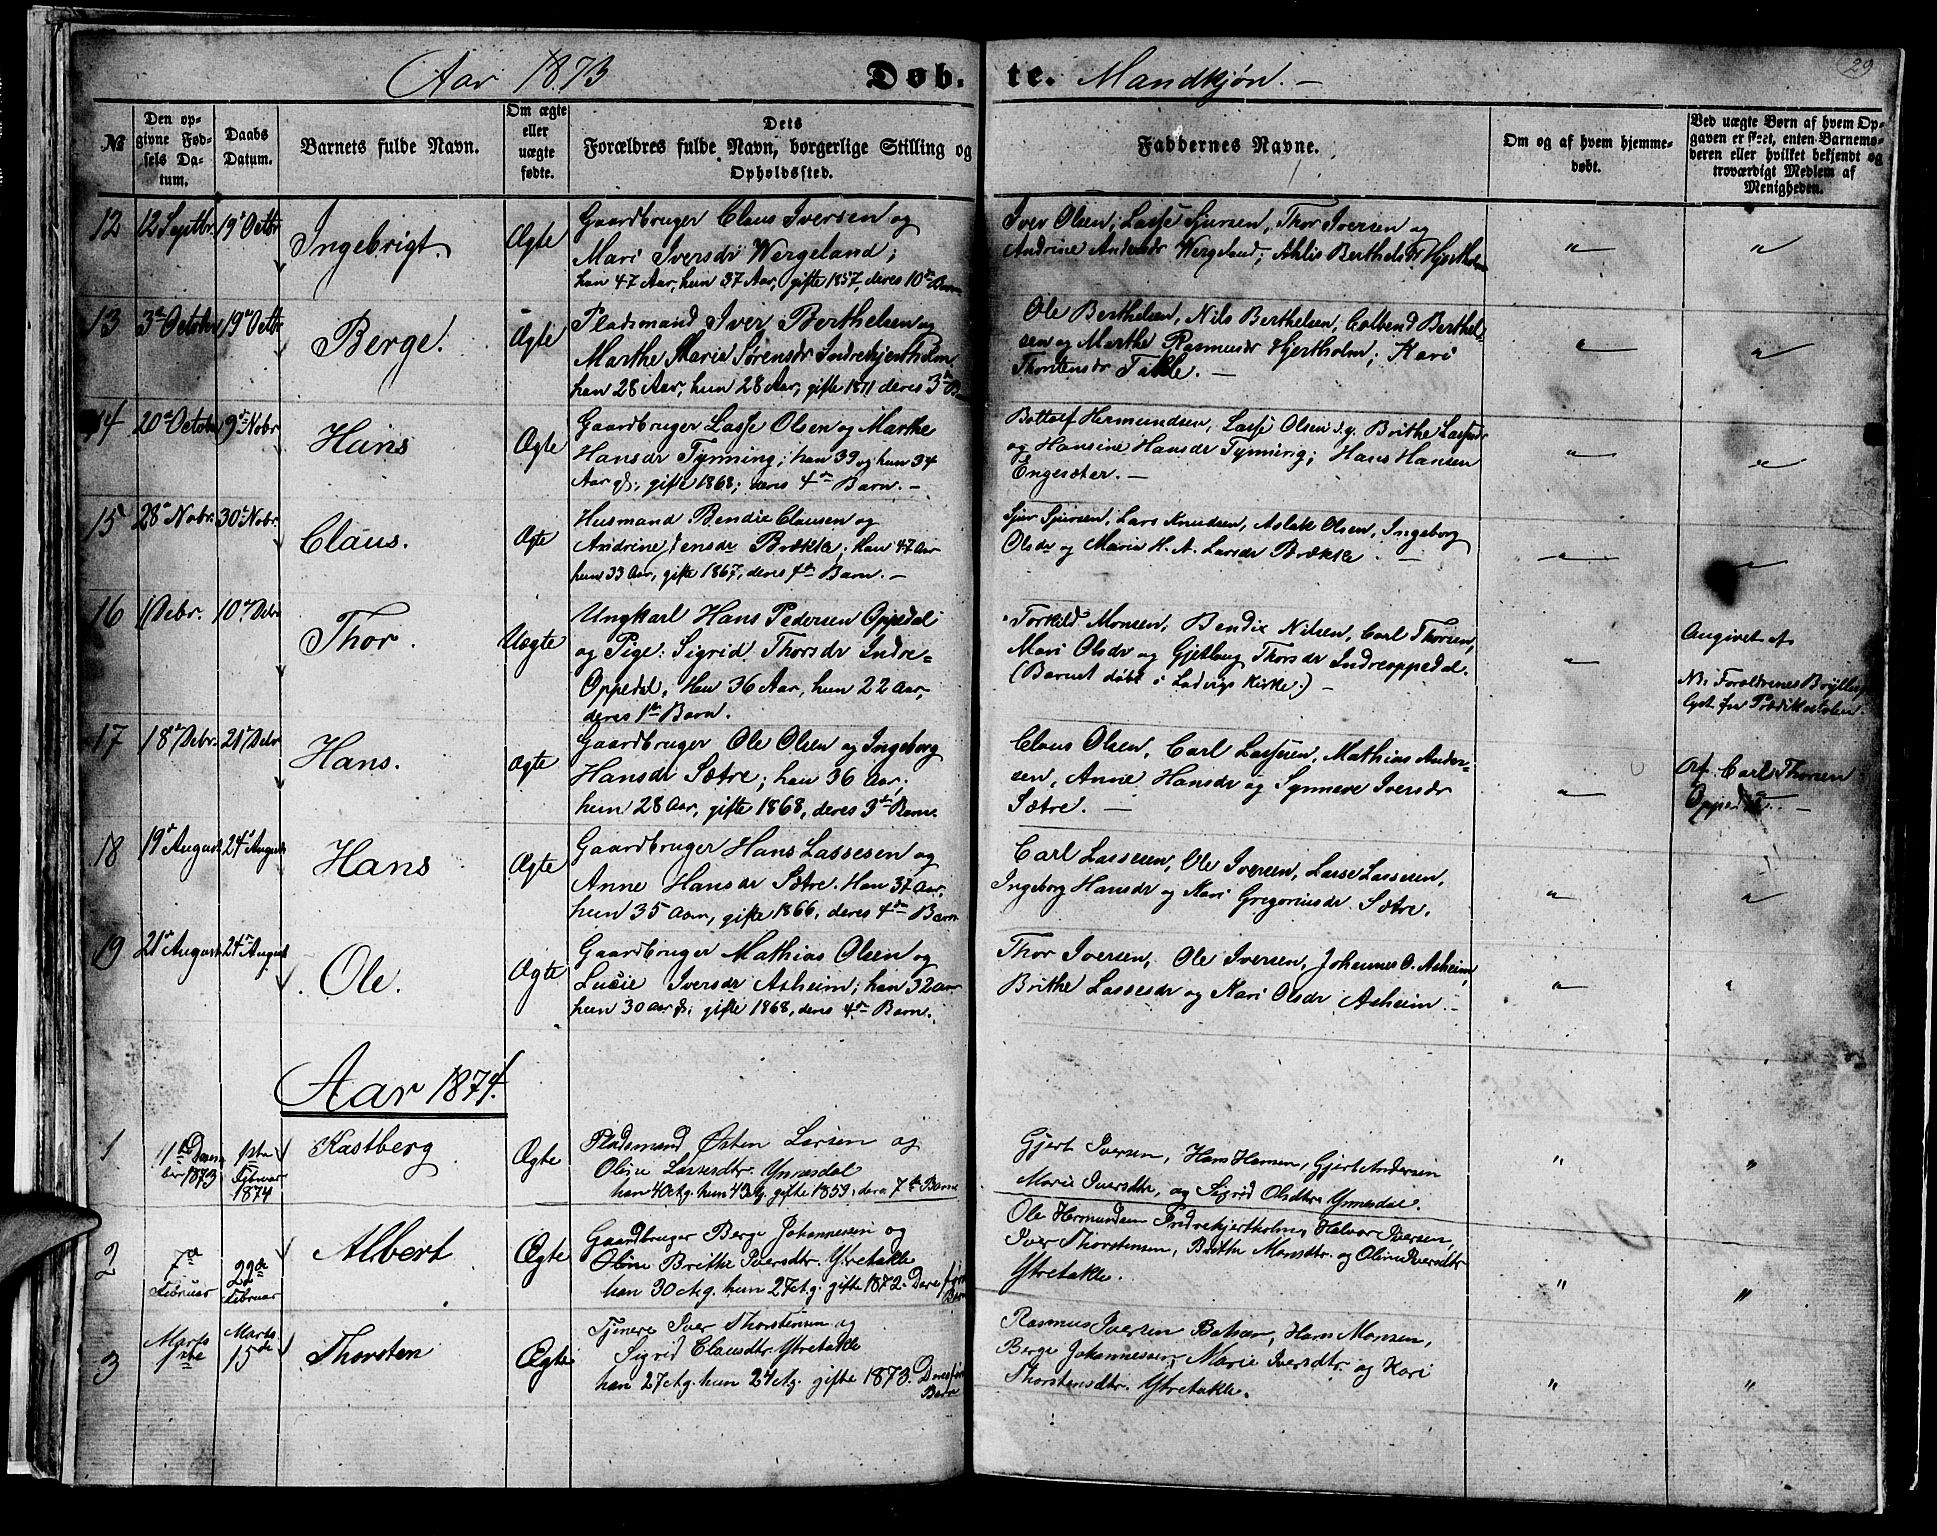 Aar 1873 Døb. te. Mandkjøn. — 29
№
Den op-
givne Fød-
sels Da-
tum.
Daabs
Datum.
Barnets fulde Navn.
Om ægte
eller
uægte
fødte.
Dets
Forældres fulde Navn, borgerlige Stilling og
Opholdssted.
Faddernes Navne.
Om og af hvem hjemme-
døbt.
Ved uægte Børn af hvem Op-
gaven er skeet, enten Barnemo-
deren eller hvilket bekjendt og
troværdigt Medlem af
Menigheden.
12 12 Septbr. 19de Octbr Ingebrigt. Ægte
Gaardbruger Claus Iversen og
Mari Iversdr Wergeland;
han 47 Aar, hun 37 Aar, gifte 1857, deres 10de Barn
Iver Olsen, Lasse Sjursen, Thor Iversen og
Andrine Andersdr Wergeland; Ahlis Berthelsdr Hjertholm
13 3de October 19de Octbr Berge. Ægte
Pladsmand Iver Berthelsen og
Marthe Marie Sørensdr Indrehjertholm
han 28 Aar, hun 28 Aar, gifte 1871 deres 3de B.
Ole Berthelsen, Nils Berthelsen, Colbend Berthel-
sen og Marthe Rasmusdr Hjertholm; Kari
Thorstensdr Takle. —
14 20de October 9de Nobr Hans Ægte
Gaardbruger Lasse Olsen og Marthe
Hansdr Tynning; han 39 og hun 34
Aar gl; gifte 1868; deres 4de Barn. —
Bottolf Hermundsen, Lasse Olsen d.y. Brithe Lassesdr
og Hansine Hansdr Tynning; Hans Hansen
Engesæter. —
15 28de Nobr. 30de Nobr. Claus. Ægte
Husmand Bendix Clausen og
Andrine Jensdr Brække; han 47 Aar
hun 33 Aar, gifte 1867, deres 4de Barn. —
Sjur Sjursen, Lars Knudsen, Aslak Olsen, Ingeborg
Olsdr og Maria H. A. Larsdr Brække —
16 1 Debr. 10de Debr Thor. Uægte
Ungkarl Hans Pedersen Oppedal
og Pige: Sigrid Thorsdr Indre-
Oppedal, Han 36 Aar, hun 22 Aar,
deres 1ste Barn.
Torkild Monsen, Bendix Nilsen, Carl Thorsen,
Mari Olsdr og Gjetlaug Thorsdr Indreoppedal.
(Barnet døbt i Ladvigs Kirke.) —
Angivet af
NB: Forældrenes Bryllup
lyst fra Prædikestolen.
17 18de Debr. 21de Debr Hans. Ægte
Gaardbruger Ole Olsen og Ingeborg
Hansdr Sætre; han 36 Aar,
hun 28 Aar, gifte 1868, deres 3de Barn.
Claus Olsen, Carl Lassesen, Mathias Ander-
sen, Anne Hansdr og Synneve Iversdr
Sætre. —
Carl Thorsen
18 19de August 24de August Hans Ægte
Gaardbruger Hans Lassesen og
Anne Hansdr Sætre. Han 37 Aar,
hun 35 Aar, gifte 1866, deres 4de Barn
Carl Lassesen, Ole Iversen, Lasse Lassesen,
Ingeborg Hansdr og Kari Gregoriusdr Sætre.
19 21de August 24de August Ole. Ægte
Gaardbruger Mathias Olsen og
Lucie Iversdr Asheim; han 32 Aar
hun 30 Aar gl; gifte 1868, deres 4de Barn.
Thor Iversen, Ole Iversen, Johannes O. Asheim,
Brithe Lassesdr og Kari Olsdr Asheim. —
Aar 1874.
1 1873 1ste Februar 1874 Kastberg Ægte
Pladsmand Østen Larsen og
Oline Lassesdtr. Ynnesdal
han 40 Ag. hun 43 Ag. gifte 1859, deres 7de Barn
Gjert Iversen, Hans Hansen, Gjert Andersen
Marie Iversdtr, og Sigrid Olsdtr Ynnesdal.
2 7de Februar 22de Februar Albert Ægte
Gaardbruger Berge Johannessen og
Oline Brithe Iversdtr. Ytretakle
han 30 Ag. hun 27 Ag. gifte 1872. Deres første Barn
Ole Hermundsen Indrehjertholm, Halvor Iversen,
Iver Thorstensen, Brithe Monsdtr. og Oline Iversdtr
Ytretakle.
3 Marts 1ste Marts 15de Thorsten Ægte
Tjenere Iver Thorstensen og
Sigrid Clausdtr. Ytretakle
han 27 Ag. hun 24 Ag. gifte 1873. Deres første Barn
Rasmus Iversen, Hans Monsen,
Berge Johannessen, Marie Iversdtr. og Kari
Thorstensdtr. Ytretakle.